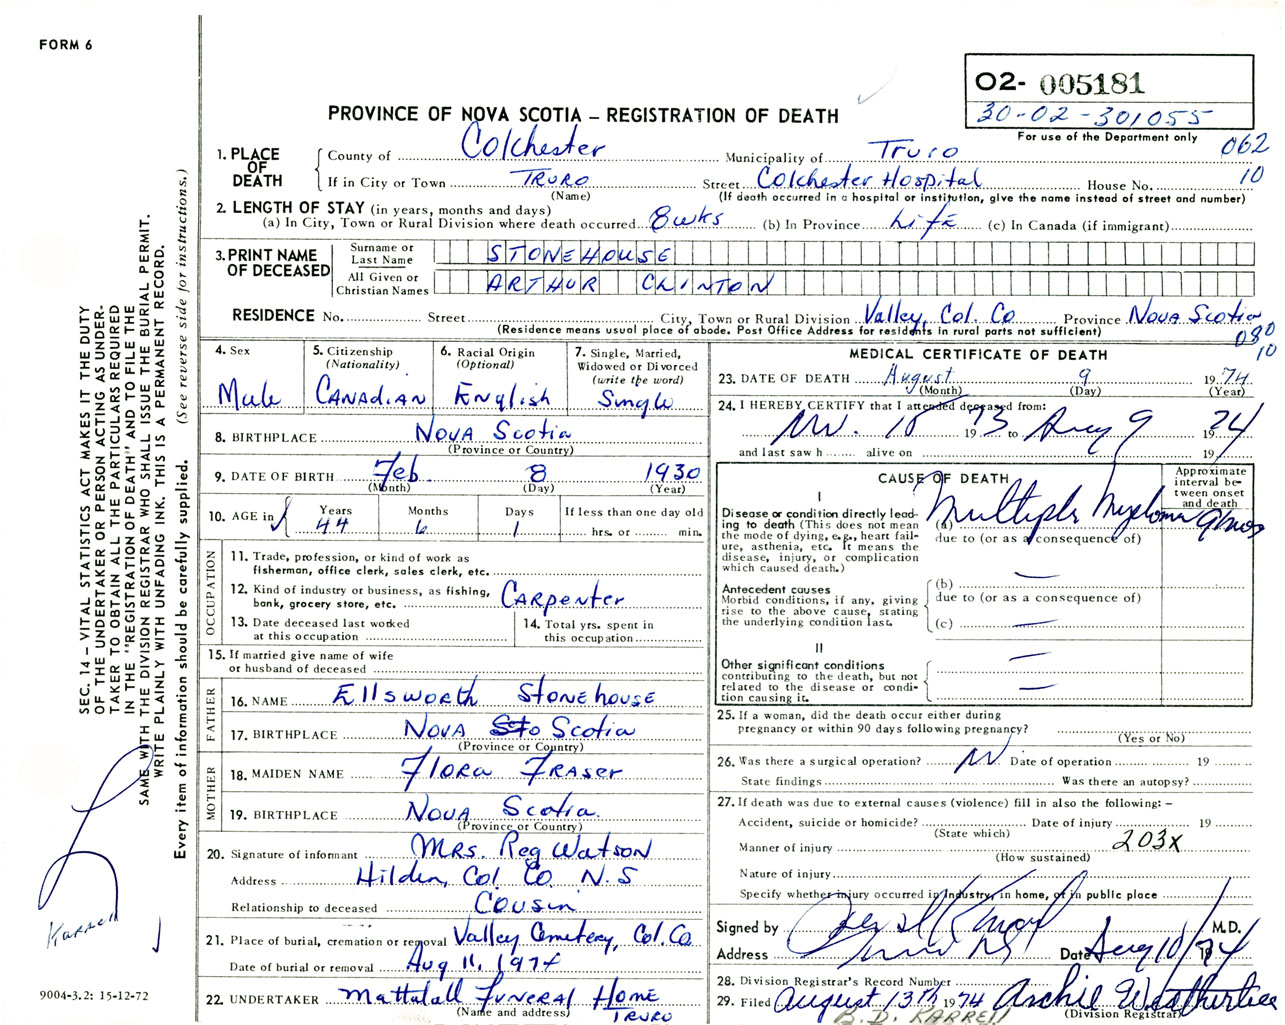 FORM 6
O2- 005181
30-02-301055
For use of the Department only
PROVINCE OF NOVA SCOTIA – REGISTRATION OF DEATH
062
10
1. PLACE OF DEATH
County of Colchester Municipality of Truro
If in City or Town TRURO Street Colchester Hospital House No.
(Name) (If death occurred in a hospital or institution, give the name instead of street and number)
2. LENGTH OF STAY (in years, months and days)
(a) In City, Town or Rural Division where death occurred 8 wks (b) In Province Life (c) In Canada (if immigrant)
3. PRINT NAME OF DECEASED
Surname or Last Name STONEHOUSE
All Given or Christian Names ARTHUR CLINTON
RESIDENCE No. Street City, Town or Rural Division Valley, Col. Co Province Nova Scotia
(Residence means usual place of abode. Post Office Address for residents in rural parts not sufficient)
080
10
4. Sex Male
5. Citizenship (Nationality) CANADIAN
6. Racial Origin (Optional) English
7. Single, Married, Widowed or Divorced (write the word) Single
8. BIRTHPLACE Nova Scotia
(Province or Country)
9. DATE OF BIRTH Feb. 8 1930
(Month) (Day) (Year)
10. AGE in Years 44 Months 6 Days 1 If less than one day old hrs. or min.
OCCUPATION
11. Trade, profession, or kind of work as
fisherman, office clerk, sales clerk, etc.
12. Kind of industry or business, as fishing,
bank, grocery store, etc. Carpenter
13. Date deceased last worked
at this occupation
14. Total yrs. spent in
this occupation
15. If married give name of wife
or husband of deceased
FATHER
16. NAME Ellsworth Stonehouse
17. BIRTHPLACE Nova Sto Scotia
(Province or Country)
MOTHER
18. MAIDEN NAME Flora Fraser
19. BIRTHPLACE Nova Scotia.
(Province or Country)
20. Signature of informant Mrs. Reg Watson
Address Hilden, Col. Co. N.S
Relationship to deceased Cousin
21. Place of burial, cremation or removal Valley Cemetery, Col. Co
Date of burial or removal Aug 11, 1974
22. UNDERTAKER Mattatall Funeral Home
(Name and address) TRURO
MEDICAL CERTIFICATE OF DEATH
23. DATE OF DEATH August 9 1974
(Month) (Day) (Year)
24. I HEREBY CERTIFY that I attended deceased from:
Nov. 15 1973 to Aug 9 1974
and last saw h alive on 19
CAUSE OF DEATH
Approximate interval between onset and death
I
Disease or condition directly leading to death (This does not mean
the mode of dying, e.g., heart failure, asthenia, etc. It means the
disease, injury, or complication
which caused death.)
(a) Multiple Myeloma 9 mos
due to (or as a consequence of)
Antecedent causes
Morbid conditions, if any, giving
rise to the above cause, stating
the underlying condition last.
(b)
due to (or as a consequence of)
(c)
II
Other significant conditions
contributing to the death, but not
related to the disease or condition causing it.
25. If a woman, did the death occur either during
pregnancy or within 90 days following pregnancy?
(Yes or No)
26. Was there a surgical operation? Date of operation 19
State findings Was there an autopsy?
27. If death was due to external causes (violence) fill in also the following: –
Accident, suicide or homicide? Date of injury 19
(State which)
Manner of injury 203x
(How sustained)
Nature of injury
Specify whether injury occurred in Industry, in home, or in public place
Signed by M.D.
Address Date Aug 10/74
28. Division Registrar's Record Number
29. Filed August 13th 1974 Archie Weatherbee
(Division Registrar)
B.D. KARRELL
SEC. 14 – VITAL STATISTICS ACT MAKES IT THE DUTY
OF THE UNDERTAKER OR PERSON ACTING AS UNDER-
TAKER TO OBTAIN ALL THE PARTICULARS REQUIRED
IN THE "REGISTRATION OF DEATH" AND TO FILE THE
SAME WITH THE DIVISION REGISTRAR WHO SHALL ISSUE THE BURIAL PERMIT.
WRITE PLAINLY WITH UNFADING INK. THIS IS A PERMANENT RECORD.
Every item of information should be carefully supplied. (See reverse side for instructions.)
Karrell
9004-3.2: 15-12-72